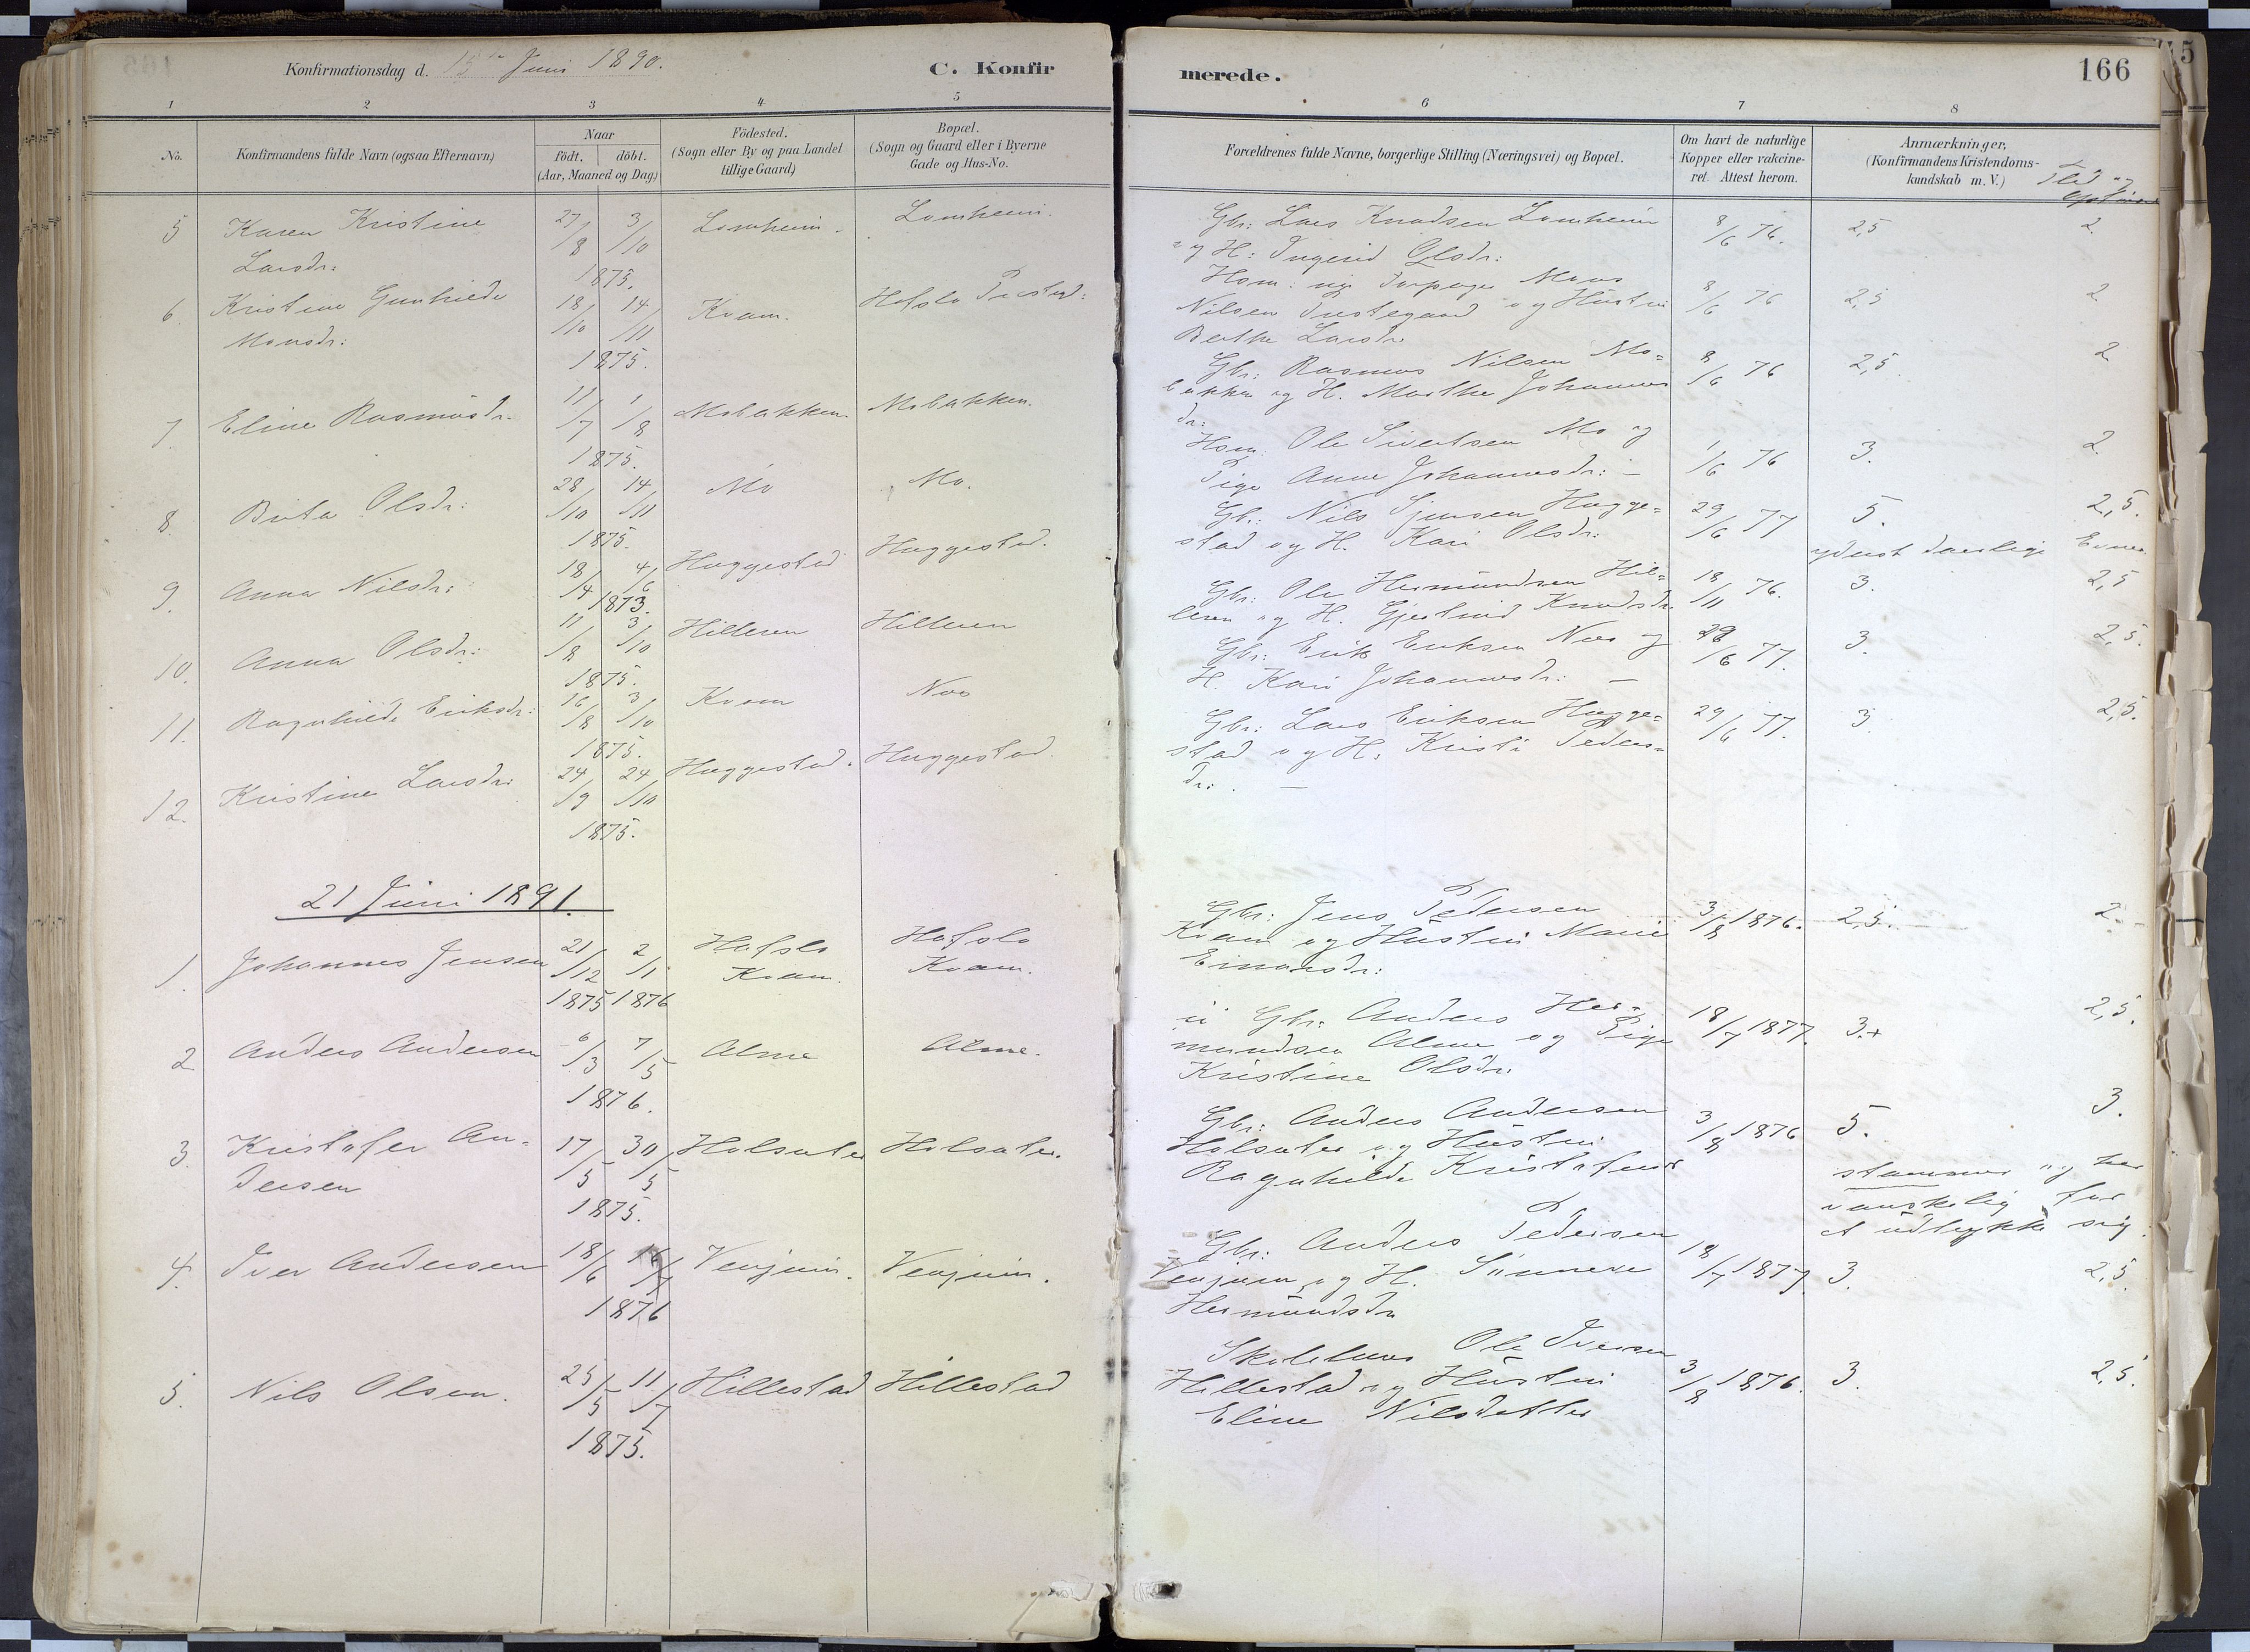 Konfirmationsdag d. 15de Juni 1890.
C. Konfirmerede.
166
1 2 3 4 5 6 7 8
No.
Konfirmandens fulde Navn (ogsaa Efternavn)
Naar
födt. döbt.
(Aar, Maaned og Dag)
Födested.
(Sogn eller By og paa Landet
tillige Gaard)
Bopæl.
(Sogn og Gaard eller i Byerne
Gade og Hus-No.
Forældrenes fulde Navne, borgerlige Stilling (Næringsvei) og Bopæl.
Om havt de naturlige
Kopper eller vakcine-
ret. Attest herom.
Anmærkninger,
(Konfirmandens Kristendoms-
kundskab m. V.)
Flid og
5 Karen Kristine 27/8 3/10 Lomheim. Lomheim. Gbr: Lars Knudsen Lomheim 8/6 76. 2,5 2.
Larsdr: 1875. og H: Ingerid Olsdr:
6. Kristine Gunhilde 18/10 14/11 Kvam. Hafslo Prestegd: Husm: Mons 8/6 76 2,5 2
Monsdr: 1875. Nilsen Prestegaard og Hustru
Berthe Larsdr.
7. Eline Rasmusdr. 11/7 1/8 Mobakken Mobakken. Gbr: Rasmus Nilsen Mo= 8/6 76 2,5. 2
1875. bakken og H. Marthe Johannes
dr:
8. Brita Olsdr: 28/10 14/11 Mo Mo. Husm. Ole Sivertsen Mo og 1/6 76 3. 2.
1875. Pige Anne Johannesdr: –
9. Anna Nilsdr: 18/4 4/6 Huggestad Huggestad. Gbr: Nils Jensen Hugge= 29/6 77 5. 2,5.
1873. stad og H. Kari Olsdr: yderst daarlige Evner
10. Anna Olsdr: 11/8 3/10 Hilleren Hilleren Gbr: Ole Hermundsen Hil= 18/11 76. 3. 2,5
1875. leren og H. Gjertrud Knudsdr.
11. Ragnhilde Eriksdr: 16/8 3/10 Kvam Nes Gbr: Erik Eriksen Nes og 29/6 77. 3. 2,5.
1875. H. Kari Johannesdr: –
12. Kristine Larsdr: 24/9 24/10 Huggestad. Huggestad. Gbr: Lars Eriksen Hugge= 29/6 77. 3 2,5.
1875. stad og H. Kristi Peders=
dr: . –
21 Juni 1891.
1. Johannes Jensen 21/12 2/1 Hafslo Hafslo Gbr: Jens Pedersen 3/8 1876. 2,5. – 2. –
1875 1876 Kvam. Kvam. Kvam og Hustru Marie
Einarsdr:
2 Anders Andersen 6/3 7/5 Alme Alme. Gbr: Anders Her= 18/7 1877. 3.+ 2,5.
1876. mundsen Alme og Pige
Kristine Olsdr.
3. Kristofer An= 17/5 30/5 Holsæter Holsæter. Gbr: Anders Andersen 3/8 1876 5. 3.
dersen 1875. Holsæter og Hustru
Ragnhilde Kristofersd stammer og har
vanskelig for
at udtrykke sig.
4. Iver Andersen 18/6 16/7 Venjum. Venjum. Gbr: Anders Pedersen 18/7 1877. 3. 2,5.
1876 Venjum og H. Sünneve
Hermundsdr
5. Nils Olsen. 25/5 11/7 Hillestad Hillestad Skolelærer Ole Iversen 3/8 1876. 3. 2,5.
1875. Hillestad og Hustru
Eline Nilsdatter